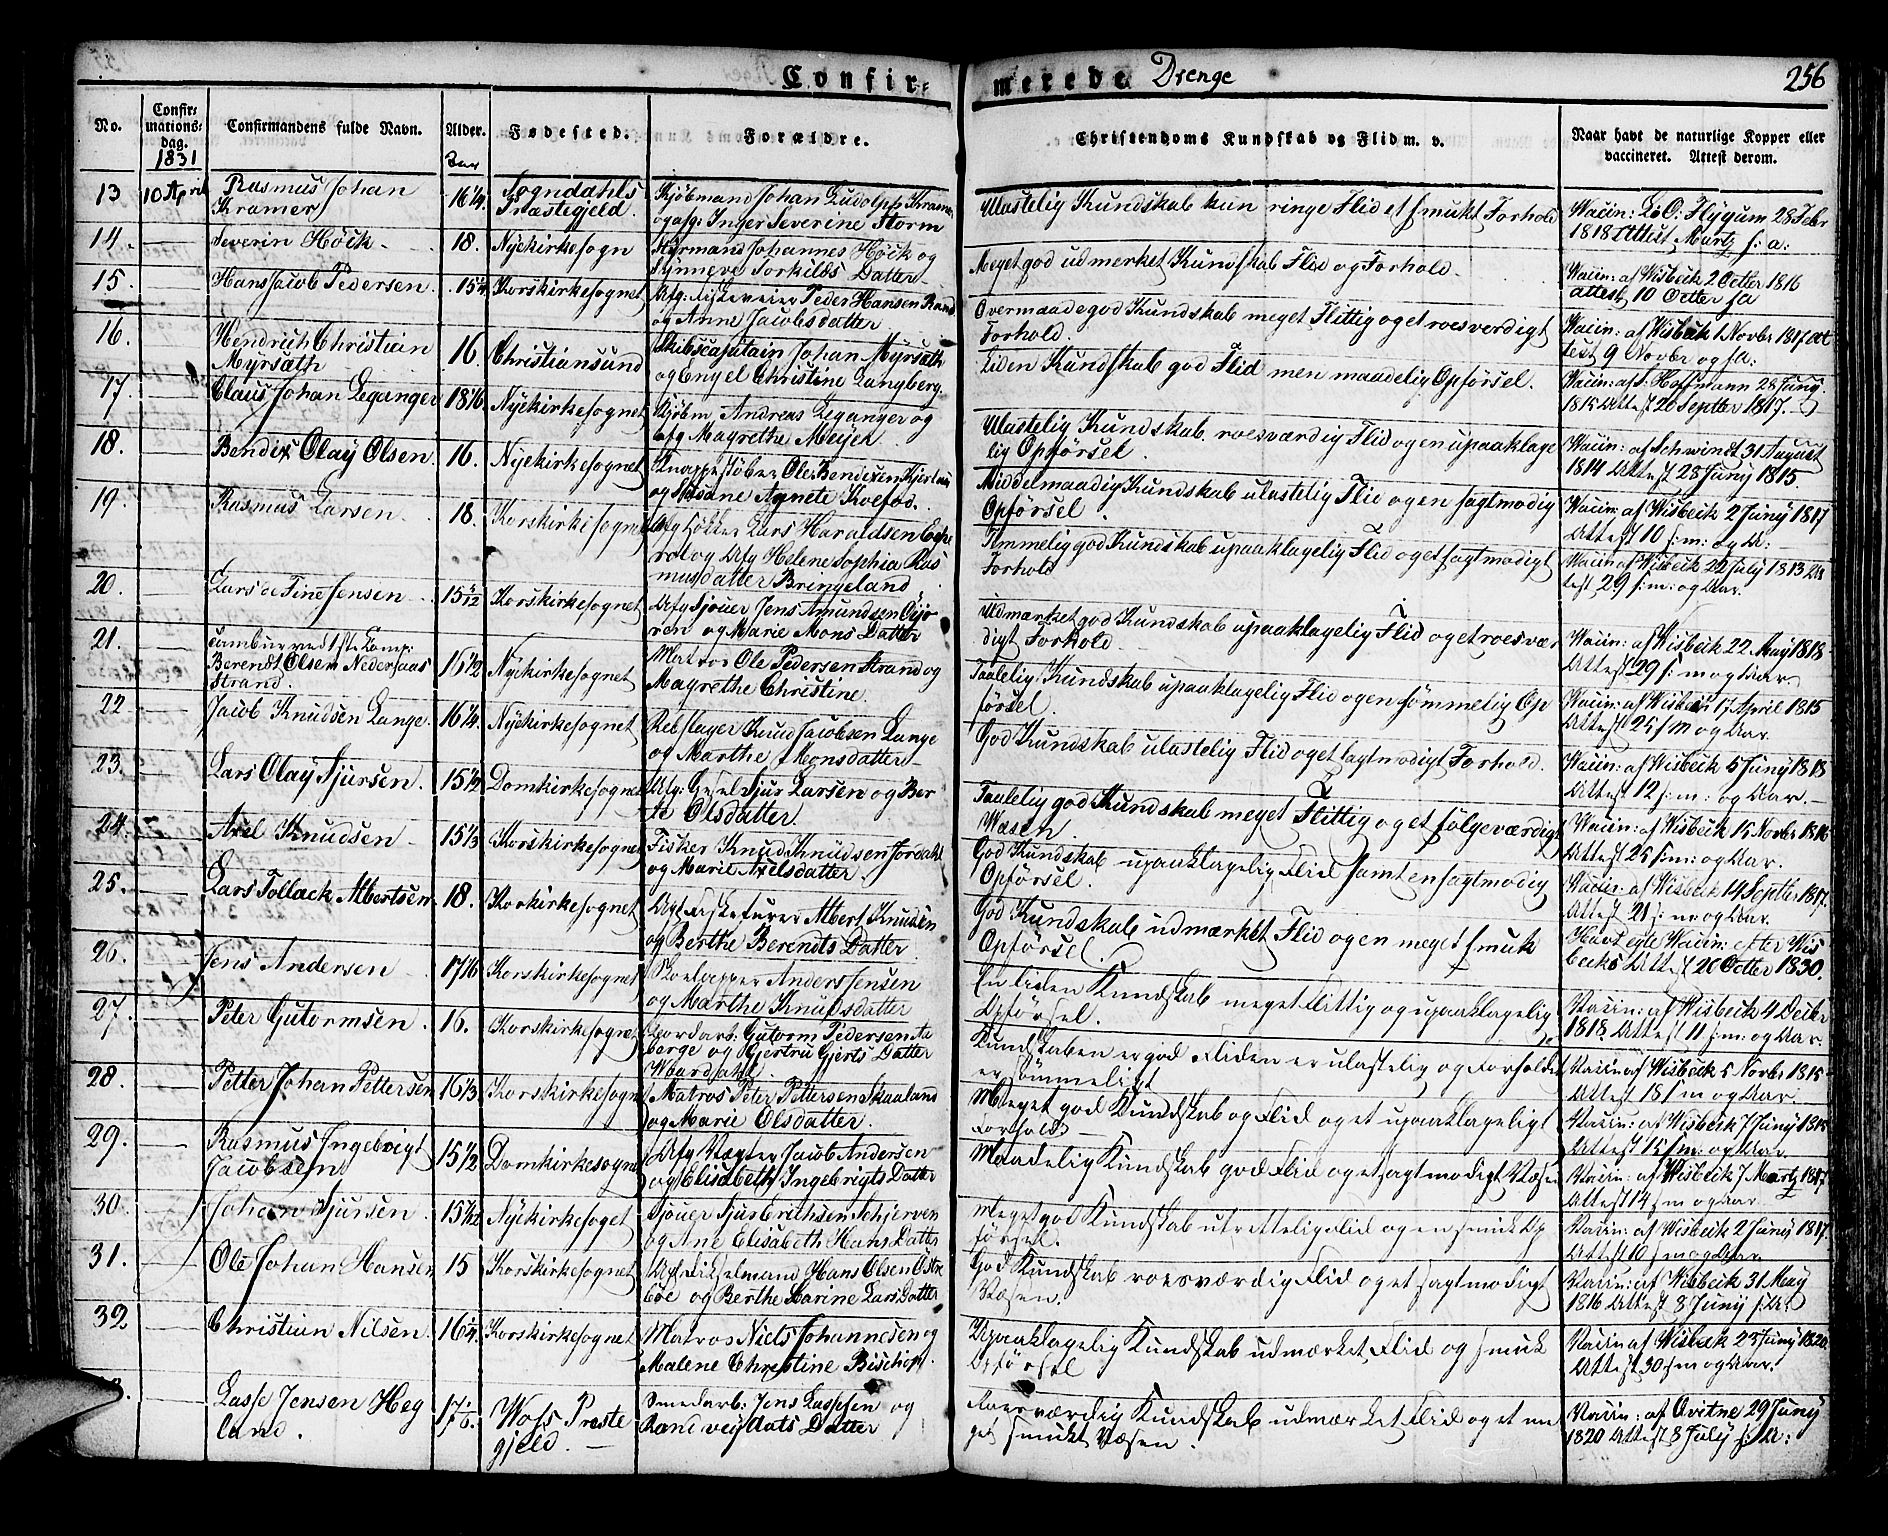 Confir-merede Drenge
256
No.
Confirmations-dag.
1831
Confirmandens fulde Navn.
Alder.
Aar
Fødested.
Forældre.
Christendoms Kundskab og Flid m. v.
Naar havt de naturlige Kopper eller
vaccineret. Attest derom.
13 10 April Rasmus Johan
Kramer
16 1/4
Sogndahls
Præstegjeld.
Kjöbmand Johan Ludolph Kramer
og afg: Inger Severine Storm
Ulastelig Kundskab kun ringe Flid et smukt Forhold
Vacin: L: O: Flygum 28 Febr
1818 Attest Martz s: a:
14 Severin Höck
18.
Nyekirkesogn
Styrmand Johannes Höck og
Synneve Torkilds Datter
Meget god udmerket Kundskab Flid og Forhold.
Vacin: af Wisbeck 2 Octter 1816
attest 10 Octter sa
15. Hans Jacob Pedersen.
15 1/4
Korskirkesognet
Afg: Peder Hansen
og Anne Jacobsdatter
Overmaade god Kundskab meget Flittig og et roesverdigt
Forhold.
Vacin: af Wisbeck 1 Novbr 1817 At
test 9 Novbr og sa:
16. Hendrich Christian
Myrsæth
16.
Christiansund
Skibscapitain Johan Myrsæth
og Engel Christine Langberg.
Liden Kundskab god Flid men maadelig Opförsel.
Vacin: af S: Hoffmann 28 Juny
1815 Attest 20 Septter 1817.
17. Claus Johan Leganger
18 1/6
Nyekirkesognet
Kjöbm Andreas Leganger og
afg Magrethe Meyer
Ulastelig Kundskab roesværdig Flid og en upaaklage
lig Opförsel.
Vacin: af Schwindt 31 August
1814 Attest 28 Juny 1815.
18. Bendix Olay Olsen
16.
Nyekirkesognet
Knappestöber Ole Bendixen
og Susane Agnete Koefod.
Middelmaadig Kundskab ulastelig Flid og en sagtmodig
Opförsel
Vacin: af Wisbeck 2 Juny 1817
Attest 10 s: m: og A:
19. Rasmus Larsen
18.
Korskirkesognet
Afg Lars Haraldsen
og Afg Helene Sophia Ras
musdatter Bringeland
Temmelig god Kundskab upaaklagelig Flid og et sagtmodigt
Forhold
Vacin af Wisbeck 22 July 1813 At
test 29 s: m: og Aar.
20. Lars de Fine Jensen
15 1/2
Korskirkesognet
Afg Sjouer Jens Amundsen
og Marie Mons Datter
Udmærket god Kundskab upaaklagelig Flid og et roesvær
digt Forhold.
Vacin: af Wisbeck 22 May 1818
Attest 29 s: m og Aar
21. Tambur ved 1ste Comp:
Berendt Olsen Nedersaas
Strand.
16 1/2
Nyekirkesognet
Matros Ole Pedersen Strand og
Magrethe Christine
Taalelig Kundskab upaaklagelig Flid og en sömmelig Op
försel.
Vacin: af Wisbeck 17 April 1815
Attest 25 s m og Aar.
22 Jacob Knudsen Lange.
16 1/4.
Nyekirkesognet
Rebslager Knud Jacobsen Lange
og Marthe Monsdatter
God Kundskab ulastelig Flid og et sagtmodigt Forhold.
Vacin: af Wisbeck 5 Juny 1818
Attest 12 s: m: og Aar.
23. Lars Olay Sjursen.
15 1/2
Domkirkesognet
Afg: Gesel Sjur Larsen og Ber
te Olsdatter
Taalelig god Kundskab meget Flittig og et fölgeværdigt
Wæsen.
Vacin: af Wisbeck 15 Novbr 1816
Attest 25 s: m: og Aar.
24. Axel Knudsen
15 1/3
Korskirkesognet
Fisker Knud Knudsen Jordahl
og Marie Axelsdatter
God Kundskab upaaklagelig Flid samt en sagtmodig
Opförsel.
Vacin: af Wisbeck 14 Septter 1817.
Attest 21 s: m og Aar.
25. Lars Tollack Albertsen
18.
Korskirkesognet
Afg Albert Knudsen
og Berthe Berendts Datter
God Kundskab udmærket Flid og en meget smuk
Opförsel.
Havt egte Vacin: efter Wis
becks Attest 20 Octter 1830.
26. Jens Andersen
17 1/6
Korskirkesognet
Anders Jensen
og Marthe Knudsdatter
En liden Kundskab meget Flittig og upaaklagelig
Opförsel.
Vacin: af Wisbeck 4 Decbr
1818 Attest 11 s: m: og Aar.
27. Peter Gutormsen.
16.
Korskirkesognet
Gutorm Pedersen
berge og Gjertru Gjerts Datter
Kundskaben er god Fliden er ulastelig og Forholdet
er sömmeligt
Vacin af Wisbeck 5 Novbr 1815
Attest 18 s m og Aar.
28. Petter Johan Pettersen
16 1/3
Korskirkesognet
Matros Peter Pettersen Skauland
og Marie Olsdatter.
Meget god Kundskab og Flid og et upaaklageligt
Forhold
Vacin: af Wisbeck 7 Juny 1815
Attest 15 s: m: og Aar.
29. Rasmus Ingebrigt
Jacobsen
15 1/2
Domkirkesognet
Afg Vægter Jacob Andersen
og Elisabeth Ingebrigts Datter
Maadelig Kundskab god Flid og et sagtmodigt Væsen
Vacin: af Wisbeck 7 Martz 1817
Attest 14 s m og Aar.
30. Johan Sjursen
Nyekirkesoget
Sjouer Sjur Erichsen
og Ane Elisabeth Hans Datter
Meget god Kundskab Flid og en smuk Op
försel.
Vacin: af Wisbeck 2 Juny 1817.
Attest 10 s m og Aar
31. Ole Johan Hansen
15
Korskirkesognet
Afg Hans Olsen
og Berthe Karine Lars Datter
God Kundskab roesværdig Flid og et sagtmodigt
Væsen.
Vacin: af Wisbeck 31 May
1816 Attest 8 Juny s: A:
32 Christian Nilsen
16 1/4
Korskirkesognet
Matros Niels Johannesen og
Malene Christine Bischop.
Upaaklagelig Kundskab udmærket Flid og smuk
Opförsel
Vacin af Wisbeck 23 Juny 1820
Attest 30 s m og Aar.
Lasse Jensen Heg
land.
Wofs Preste
gjeld.
Smedarb: Jens Lassesen og
Randvey Datter
Roesværdig Kundskab udmærket Flid og et me
get smukt Væsen.
Vacin: af Qvitne 29 Juny
1820 Attest 8 July s: A: